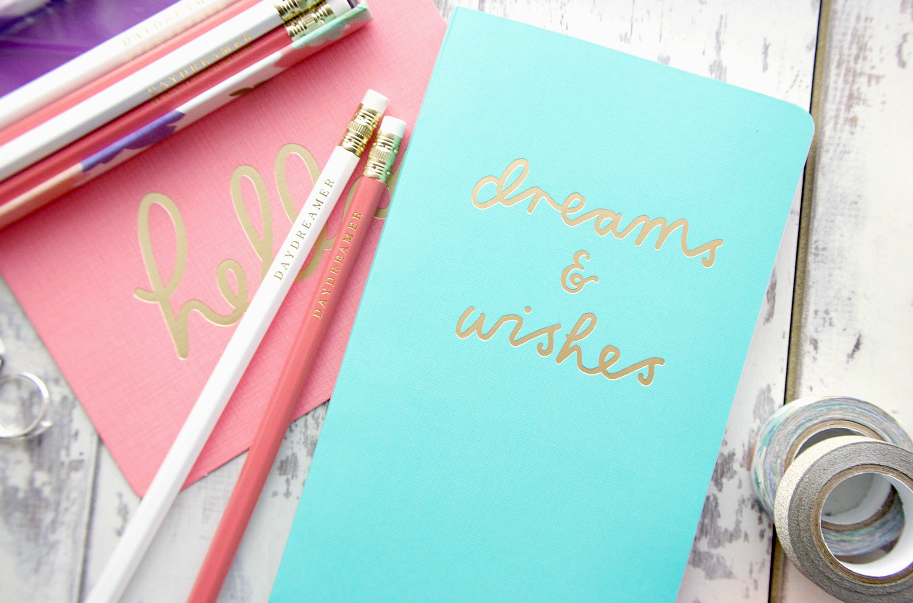 DAYDREAMER
DAYDREAMER
hello
DAYDREAMER
DAYDREAMER
dreams
&
wishes